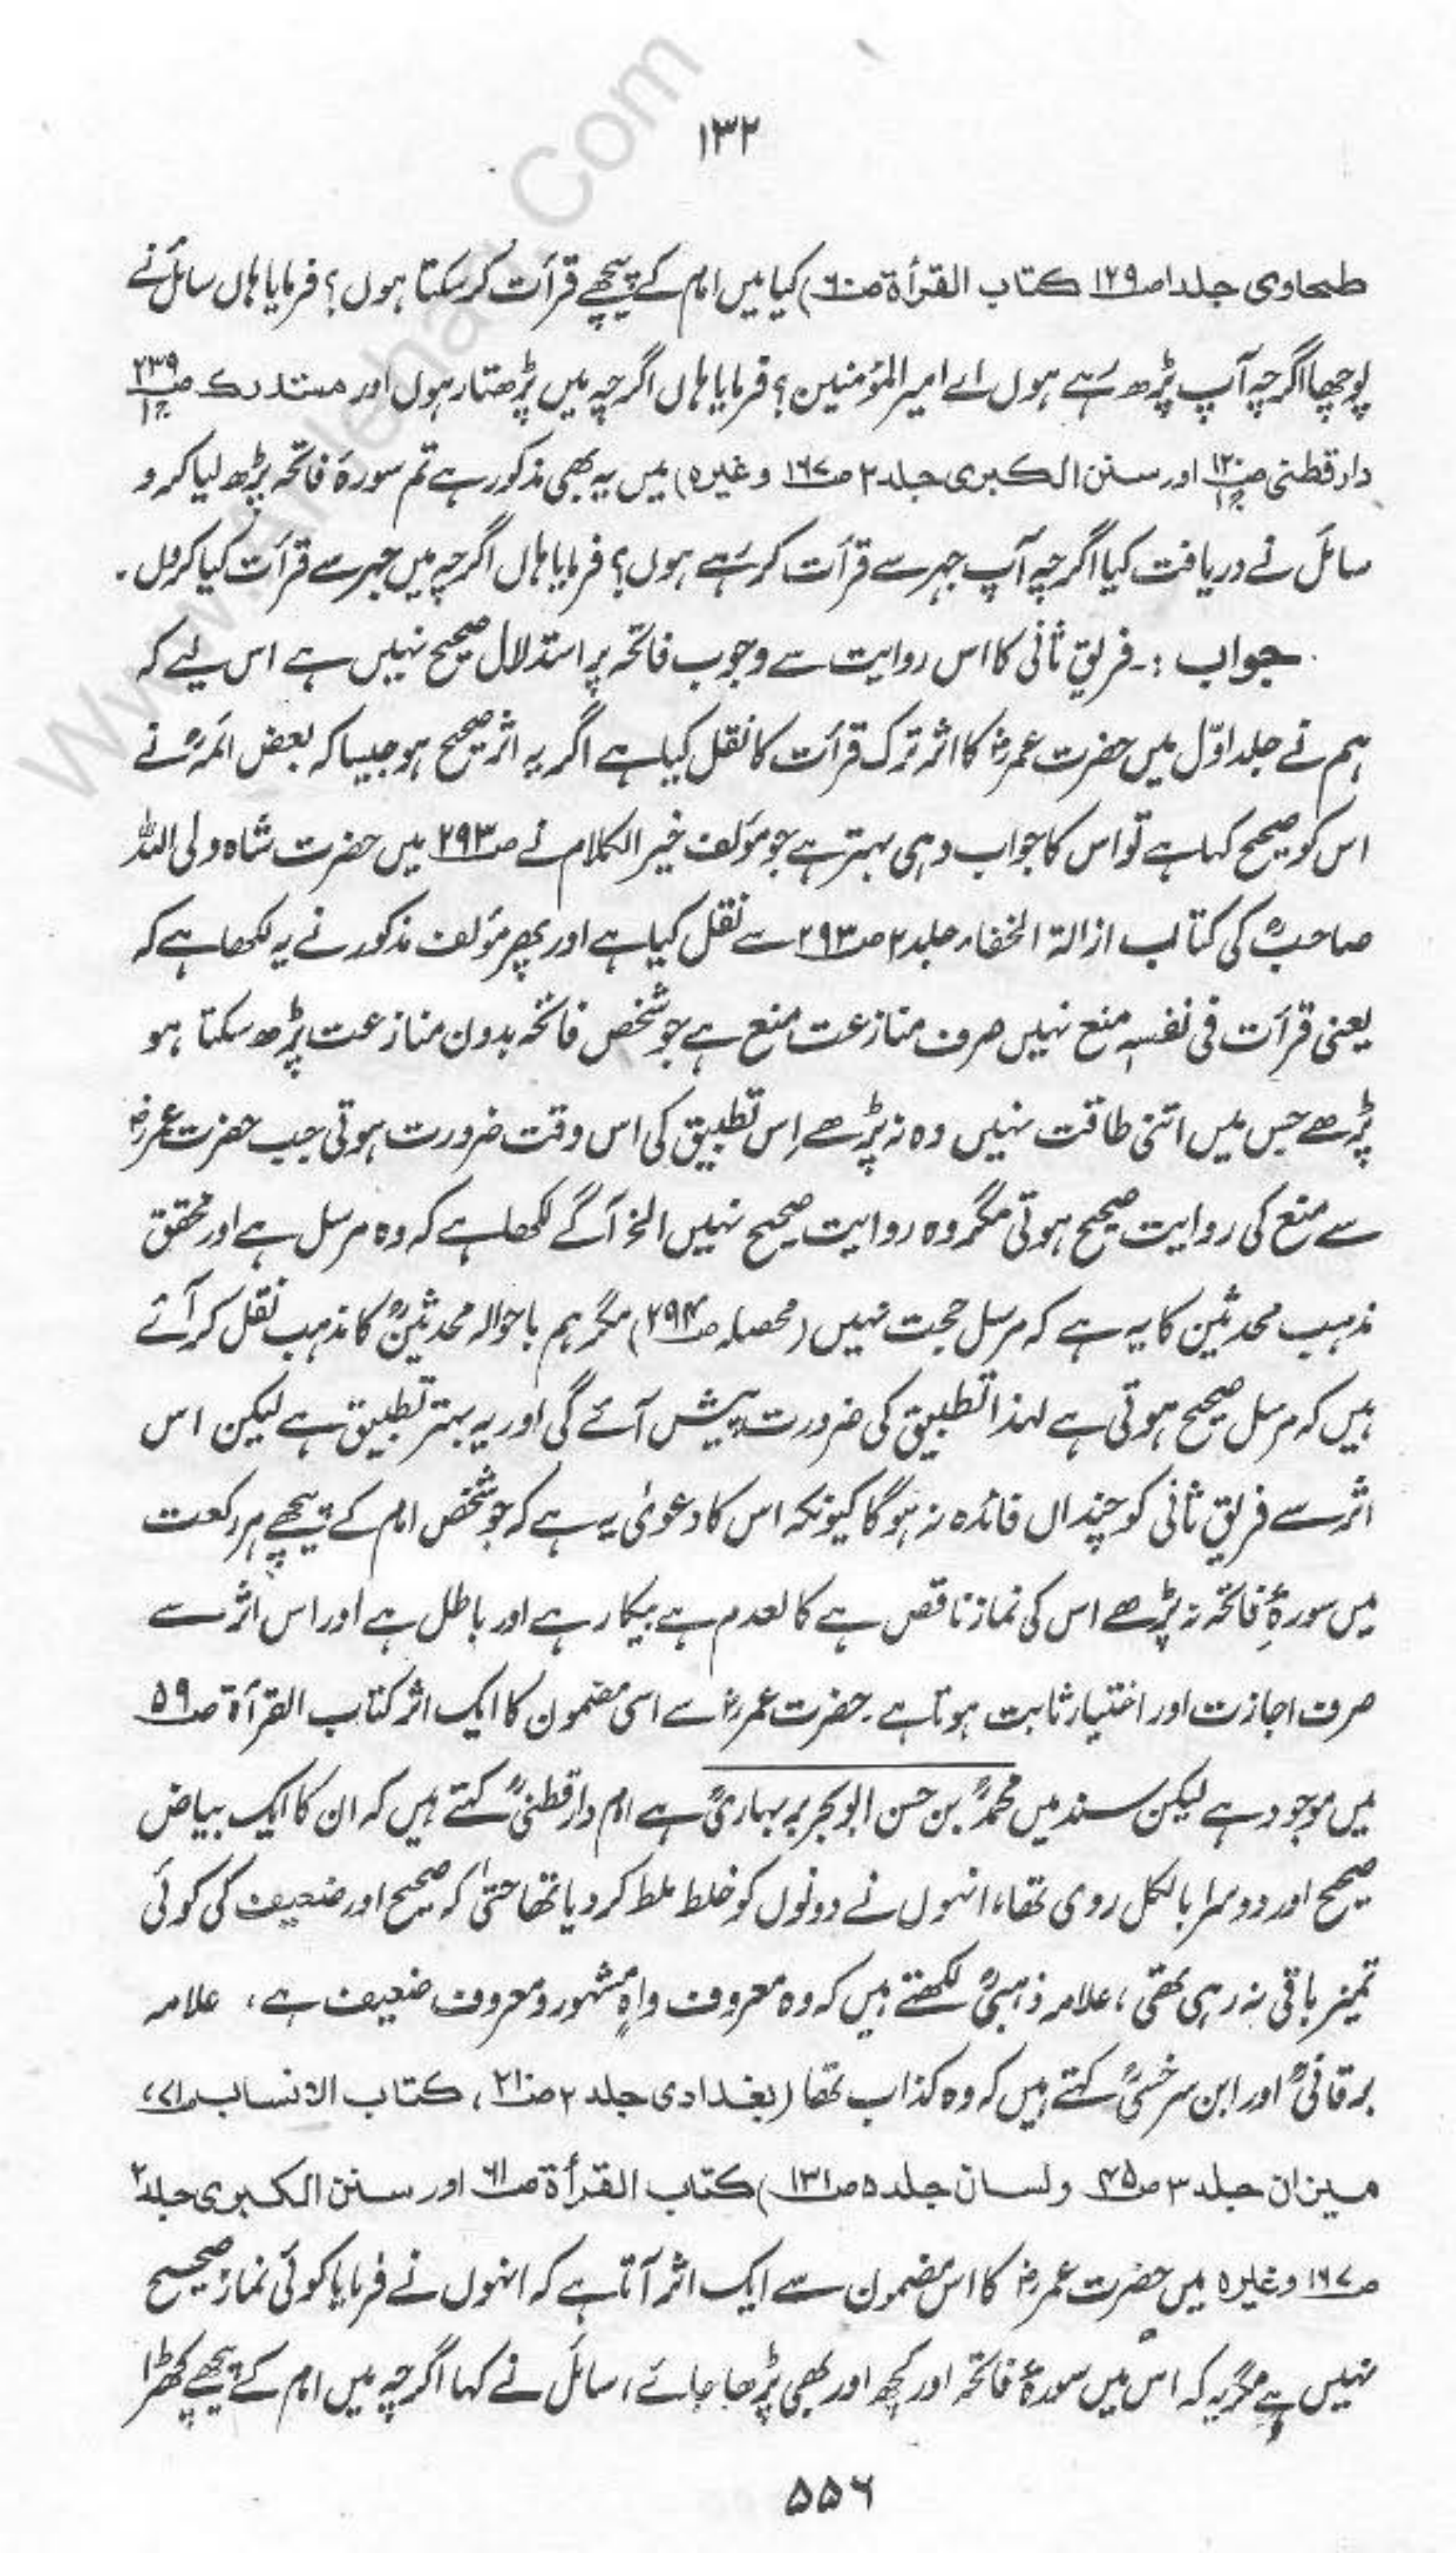 ۱۳۲
طحاوی جلد۱ ص۱۲۹ کتاب القرأة ص۶۰) کیا میں امام کے پیچھے قرأت کر سکتا ہوں؟ فرمایا ہاں سائل نے
پوچھا اگرچہ آپ پڑھ رہے ہوں اے امیر المؤمنین؟ فرمایا ہاں اگرچہ میں پڑھتا رہوں اور مستدرک ص۲۳۹ ج۱
دارقطنی ص۱۲۰ ج۱ اور سنن الکبری جلد۲ ص۱۶۷ وغیرہ) میں یہ بھی مذکور ہے تم سورۂ فاتحہ پڑھ لیا کرو
سائل نے دریافت کیا اگرچہ آپ جہر سے قرأت کر رہے ہوں؟ فرمایا ہاں اگرچہ میں جہر سے قرأت کیا کروں۔
جواب :۔ فریق ثانی کا اس روایت سے وجوب فاتحہ پر استدلال صحیح نہیں ہے اس لیے کہ
ہم نے جلد اوّل میں حضرت عمرؓ کا اثر ترک قرأت کا نقل کیا ہے اگر یہ اثر صحیح ہو جیسا کہ بعض ائمہؒ نے
اس کو صحیح کہا ہے تو اس کا جواب وہی بہتر ہے جو مؤلف خیر الکلام نے ص۲۹۳ میں حضرت شاہ ولی اللہ
صاحبؒ کی کتاب ازالة الخفاء جلد۲ ص۲۹۳ سے نقل کیا ہے اور پھر مؤلف مذکور نے یہ لکھا ہے کہ
یعنی قرأت فی نفسہٖ منع نہیں صرف منازعت منع ہے جو شخص فاتحہ بدون منازعت پڑھ سکتا ہو
پڑھے جس میں اتنی طاقت نہیں وہ نہ پڑھے اس تطبیق کی اس وقت ضرورت ہوتی جب حضرت عمرؓ
سے منع کی روایت صحیح ہوتی مگر وہ روایت صحیح نہیں الخ آگے لکھا ہے کہ وہ مرسل ہے اور محقق
مذہب محدثین کا یہ ہے کہ مرسل حجت نہیں (محصلہ ص۲۹۴) مگر ہم باحوالہ محدثینؒ کا مذہب نقل کر آئے
ہیں کہ مرسل صحیح ہوتی ہے لہذا تطبیق کی ضرورت پیش آئے گی اور یہ بہتر تطبیق ہے لیکن اس
اثر سے فریق ثانی کو چنداں فائدہ نہ ہوگا کیونکہ اس کا دعویٰ یہ ہے کہ جو شخص امام کے پیچھے ہر رکعت
میں سورۂ فاتحہ نہ پڑھے اس کی نماز ناقص ہے کالعدم ہے بیکار ہے اور باطل ہے اور اس اثر سے
صرف اجازت اور اختیار ثابت ہوتا ہے۔ حضرت عمرؓ سے اسی مضمون کا ایک اثر کتاب القرأة ص۵۹
میں موجود ہے لیکن سند میں محمدؒ بن حسن ابوبکر بربہاریؒ ہے امام دارقطنیؒ کہتے ہیں کہ ان کا ایک بیاض
صحیح اور دوسرا بالکل روی تھا، انہوں نے دونوں کو خلط ملط کر دیا تھا حتیٰ کہ صحیح اور ضعیف کی کوئی
تمیز باقی نہ رہی تھی، علامہ ذہبیؒ لکھتے ہیں کہ وہ معروف واہٍ مشہور و معروف ضعیف ہے، علامہ
برقانیؒ اور ابن سرخسیؒ کہتے ہیں کہ وہ کذاب تھا (بغدادی جلد ۲ ص۲۱۰، کتاب الانساب ص۷۱،
میزان جلد ۳ ص۴۵ ولسان جلد ۵ ص۱۳۱) کتاب القرأة ص۶۱ اور سنن الکبری جلد۲
ص۱۶۷ وغیرہ میں حضرت عمرؓ کا اس مضمون سے ایک اثر آتا ہے کہ انہوں نے فرمایا کوئی نماز صحیح
نہیں ہے مگر یہ کہ اس میں سورۂ فاتحہ اور کچھ اور بھی پڑھا جائے، سائل نے کہا اگرچہ میں امام کے پیچھے کھڑا
۵۵۶